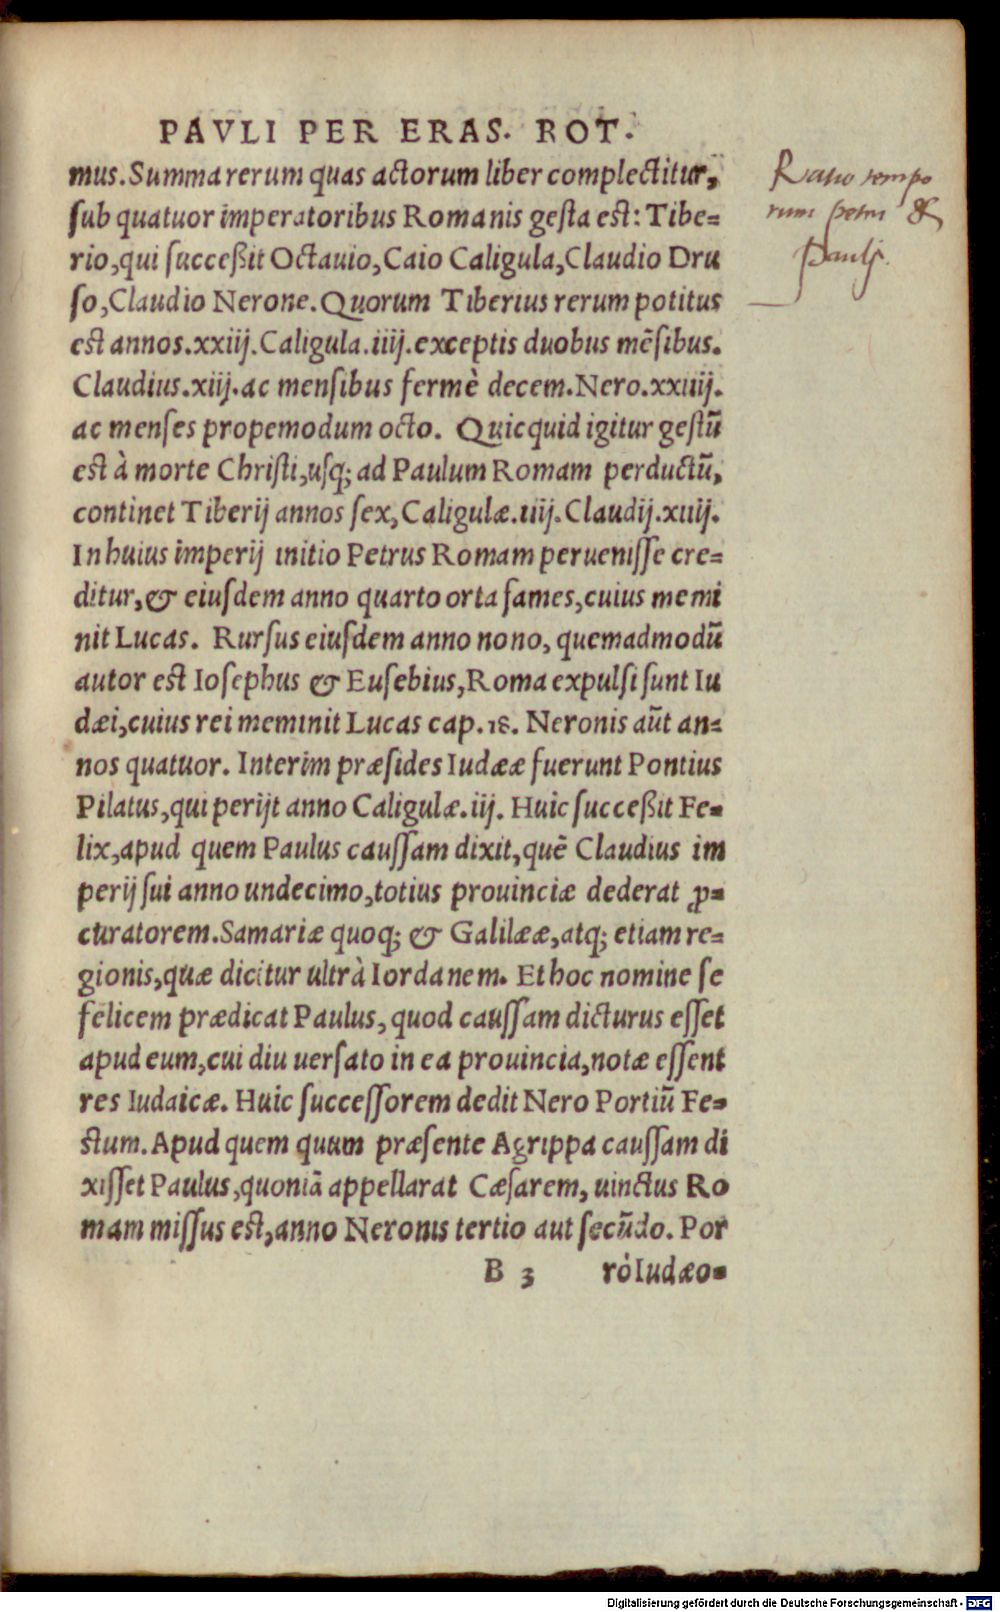 PAVLI PER ERAS. ROT.
mus. Summa rerum quas actorum liber complectitur,
sub quatuor imperatoribus Romanis gesta est: Tibe=
rio, qui succeßit Octauio, Caio Caligula, Claudio Dru
so, Claudio Nerone. Quorum Tiberius rerum potitus
est annos. xxiij. Caligula. iiij. exceptis duobus mēsibus.
Claudius. xiij. ac mensibus fermè decem. Nero. xxiiij.
ac menses propemodum octo. Quicquid igitur gestū
est à morte Christi, usq; ad Paulum Romam perductū,
continet Tiberij annos sex, Caligulæ. iiij. Claudij. xiiij.
In huius imperij initio Petrus Romam peruenisse cre=
ditur, & eiusdem anno quarto orta fames, cuius memi
nit Lucas. Rursus eiusdem anno nono, quemadmodū
autor est Iosephus & Eusebius, Roma expulsi sunt Iu
dæi, cuius rei meminit Lucas cap. 18. Neronis aūt an=
nos quatuor. Interim præsides Iudææ fuerunt Pontius
Pilatus, qui perijt anno Caligulæ. iij. Huic succeßit Fe=
lix, apud quem Paulus caussam dixit, quē Claudius im
perij sui anno undecimo, totius prouinciæ dederat ꝓ=
curatorem. Samariæ quoq; & Galilææ, atq; etiam re=
gionis, quæ dicitur ultrà Iordanem. Et hoc nomine se
felicem prædicat Paulus, quod caussam dicturus esset
apud eum, cui diu uersato in ea prouincia, notæ essent
res Iudaicæ. Huic successorem dedit Nero Portiū Fe=
stum. Apud quem quum præsente Agrippa caussam di
xisset Paulus, quoniā appellarat Cæsarem, uinctus Ro
mam missus est, anno Neronis tertio aut secūdo. Por
B 3 rò Iudæo=
Ratio tempo
rum petri &
Pauli.
Digitalisierung gefördert durch die Deutsche Forschungsgemeinschaft - DFG